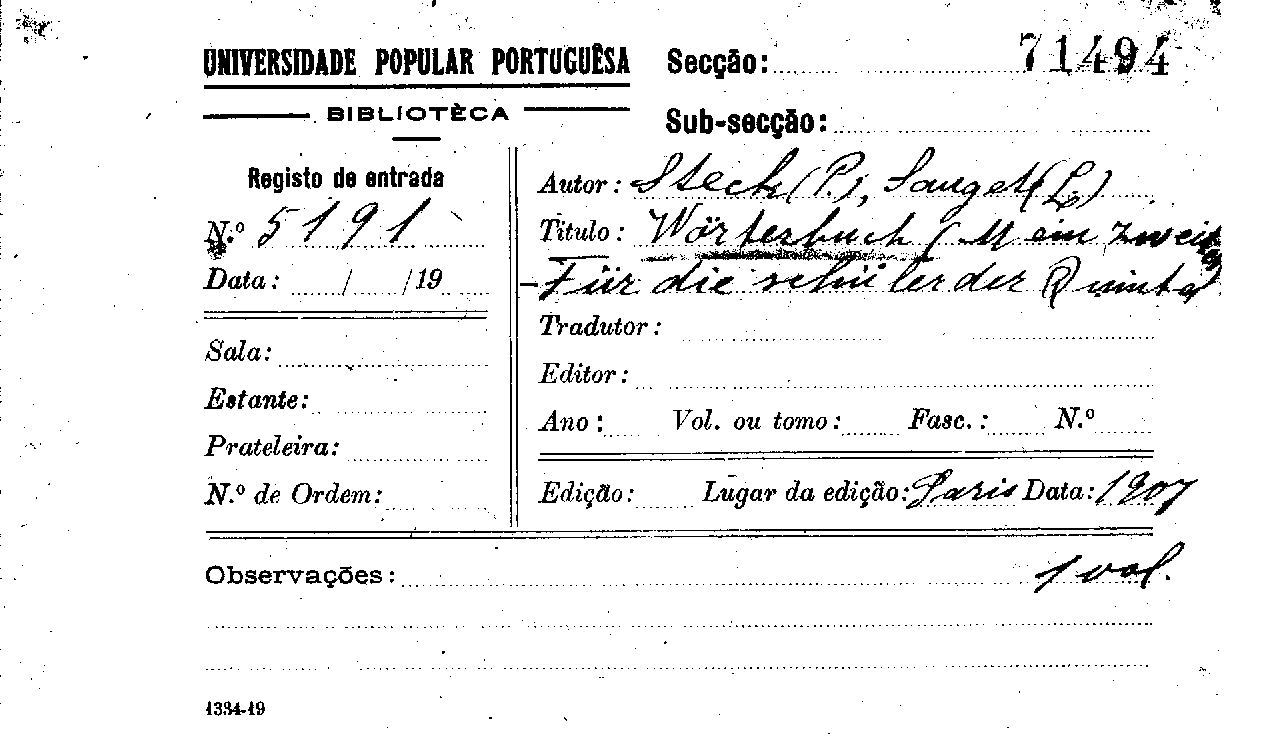 UNIVERSIDADE POPULAR PORTUGUÊSA
BIBLIOTÈCA
Secção: 71494
Sub-secção:
Registo de entrada
N.º 5191
Data: / /19
Sala:
Estante:
Prateleira:
N.º de Ordem:
Autor: Steck (P.), Sauget (L.)
Titulo: Wörterbuch (Mein zweites
- Für die schüler der Quinta
Tradutor:
Editor:
Ano: Vol. ou tomo: Fasc.: N.º
Edição: Lugar da edição: Paris Data: 1907
Observações: 1 vol.
1334-19